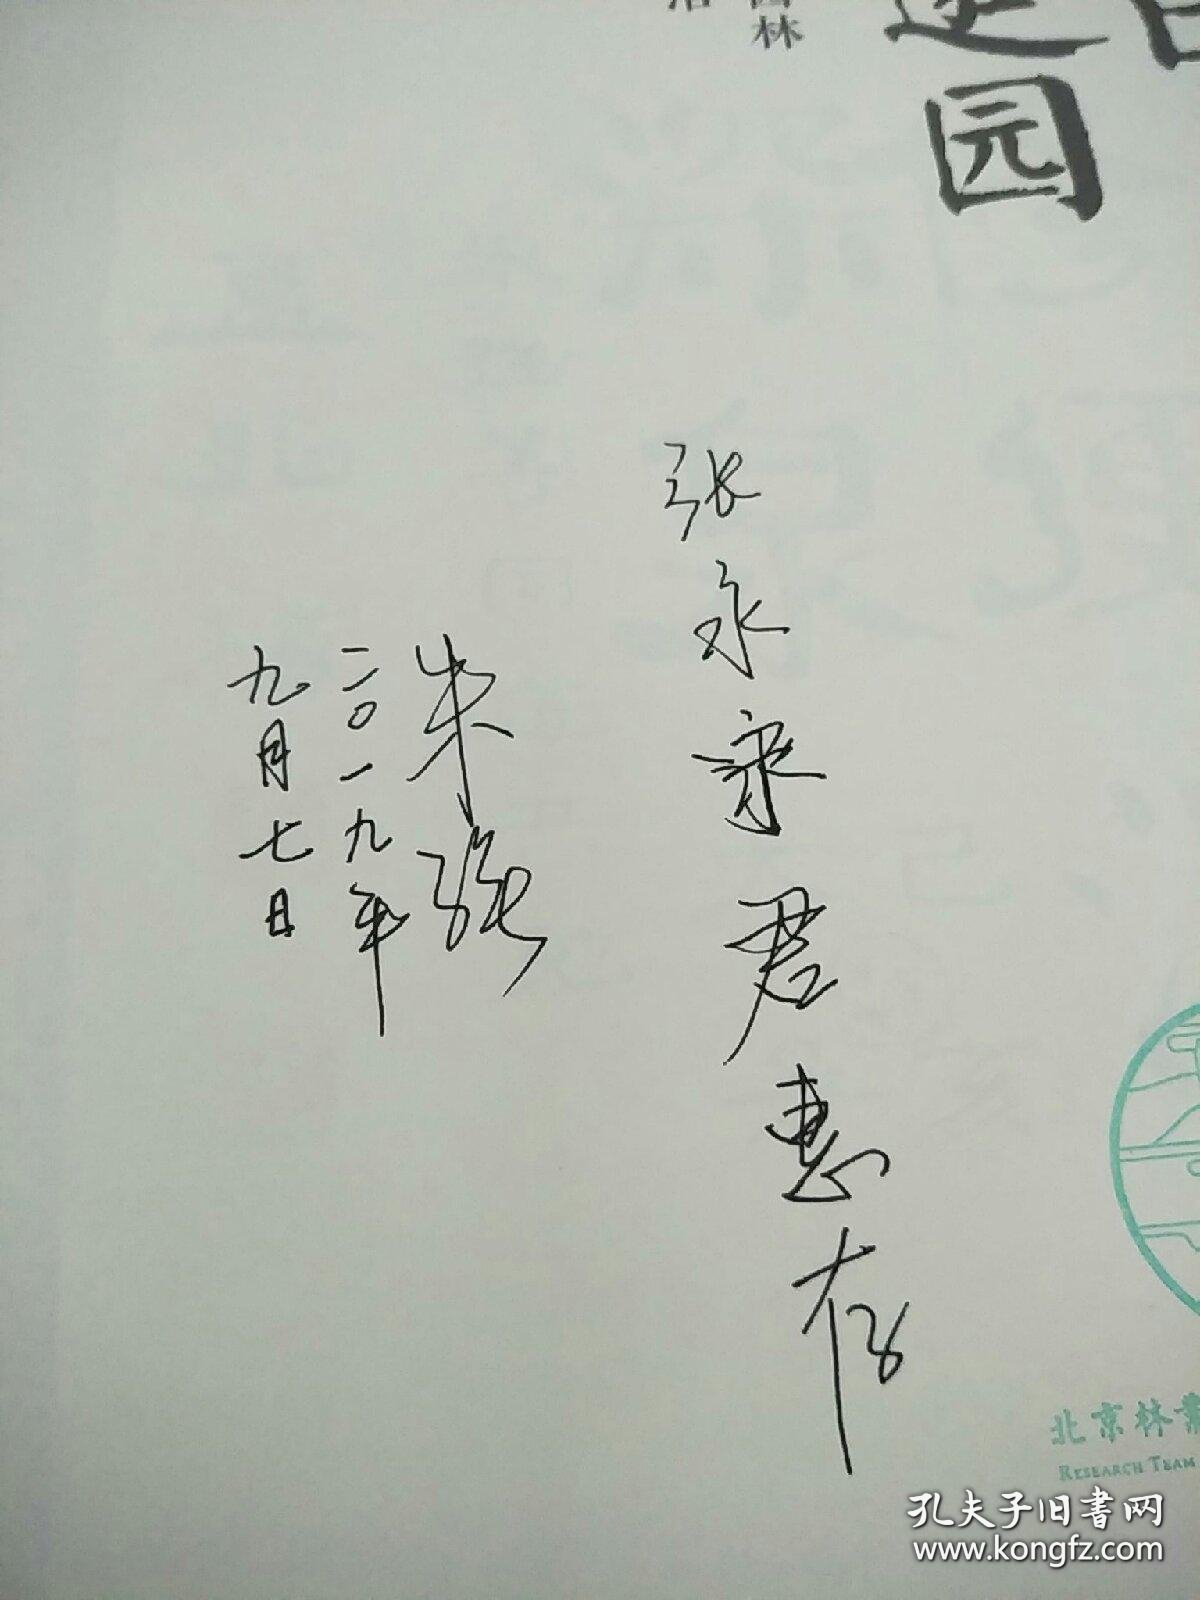 园
林
张永君惠存
朱强
二〇一九年
九月七日
北京林業
RESEARCH TEAM
孔夫子旧书网
www.kongfz.com